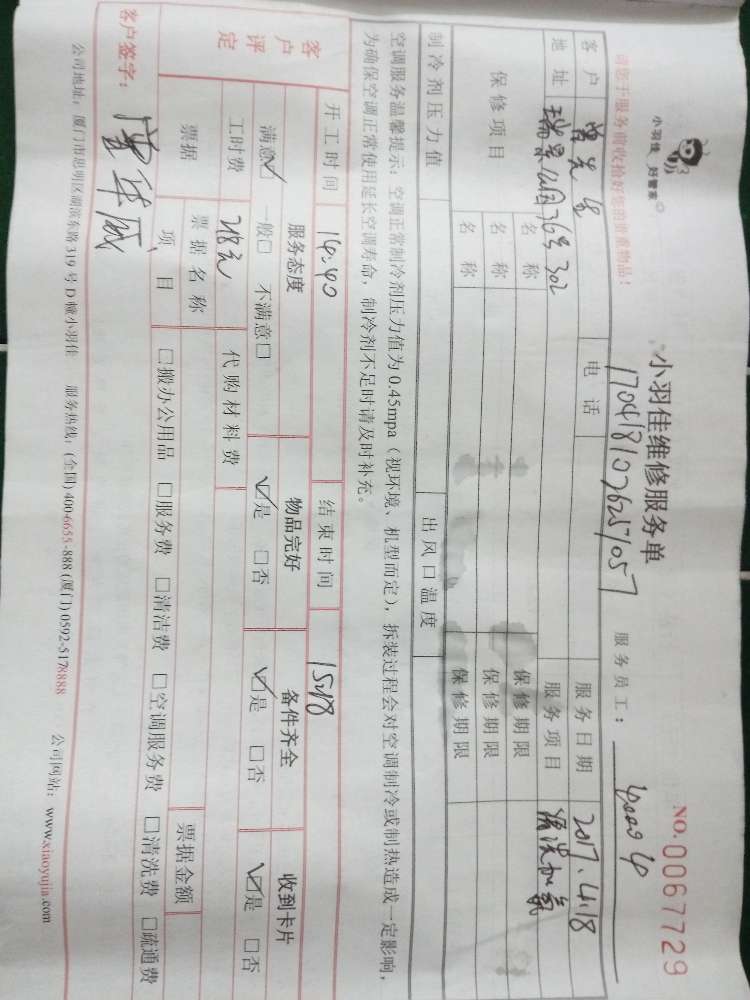 小羽佳 好管家
请您于服务前收捡好您的贵重物品！
小羽佳维修服务单
NO.0067729
17041810762571057
服务员工：
客户 曾先生 电话 服务日期 2017.4.18
地址 瑞景公园36号302 服务项目 清洗加氟
保修项目 名称 保修期限
名称 保修期限
名称 保修期限
制冷剂压力值 出风口温度
空调服务温馨提示：空调正常制冷剂压力值为0.45mpa（视环境、机型而定），拆装过程会对空调制冷或制热造成一定影响，
为确保空调正常使用延长空调寿命，制冷剂不足时请及时补充。
开工时间 14:40 结束时间 15:18
客户评定 服务态度 物品完好 备件齐全 收到卡片
满意☑ 一般□ 不满意□ ☑是 □否 ☑是 □否 ☑是 □否
工时费 218元 代购材料费
票据 票据名称 票据金额
项目 □搬办公用品 □服务费 □清洁费 □空调服务费 □清洗费 □疏通费
客户签字：
公司地址：厦门市思明区湖滨东路319号D幢小羽佳 服务热线：(全国)400-6655-888 (厦门)0592-5178888 公司网站：www.xiaoyujia.com